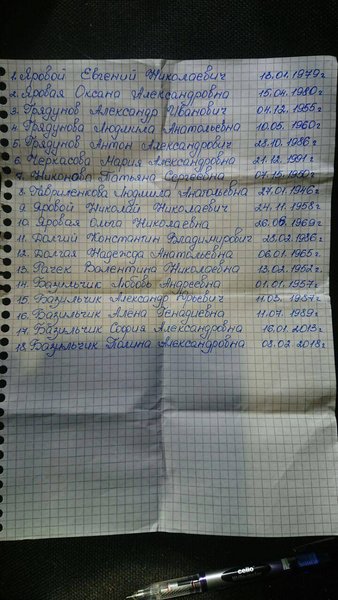 1. Яровой Евгений Николаевич 18.01.1979г
2. Яровая Оксана Александровна 15.04.1980г.
3. Грядунов Александр Иванович 04.12.1955г
4. Грядунова Людмила Анатольевна 10.05.1960г
5. Грядунов Антон Александрович 28.10.1986г.
6. Черкасова Мария Александровна 21.12.1991г.
7. Никонова Татьяна Сергеевна
8. Гавриленкова Людмила Анатольевна 27.01.1946г.
9. Яровой Николай Николаевич 24.11.1958г.
10. Яровая Ольга Николаевна 26.06.1969г
11. Долгий Константин Владимирович 23.02.1986г.
12. Долгая Надежда Анатольевна 06.01.1965г
13. Рачек Валентина Николаевна 13.02.1952г.
14. Базильчик Любовь Андреевна 01.01.1957г.
15. Базильчик Александр Юрьевич 11.03.1987г.
16. Базильчик Алена Генадиевна 11.07.1989г.
17. Базильчик София Александровна 16.01.2013г.
18. Базильчик Полина Александровна 08.02.2018г.
cello